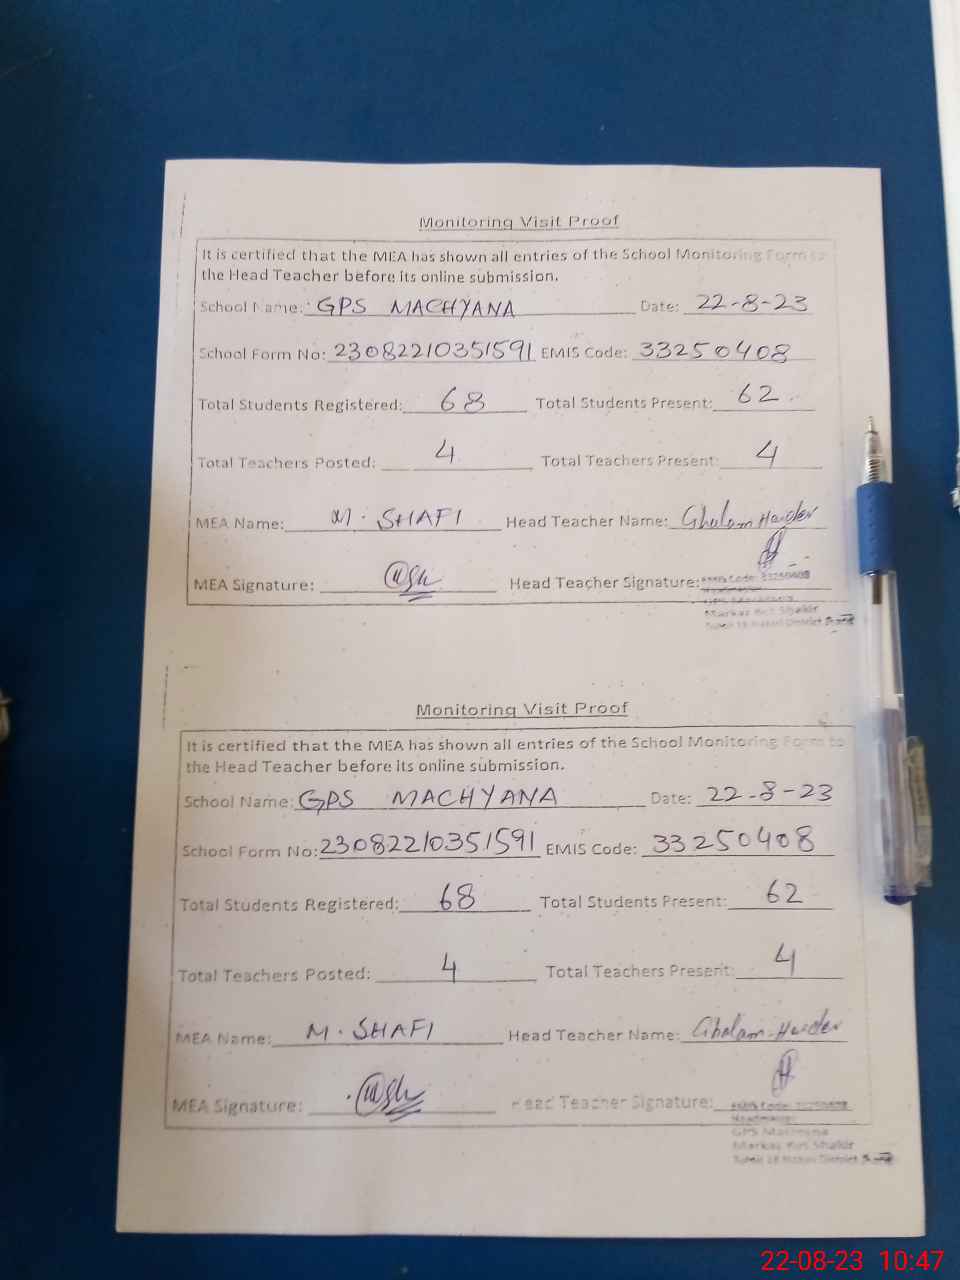 Monitoring Visit Proof
It is certified that the MEA has shown all entries of the School Monitoring Form to
the Head Teacher before its online submission.
School Name: GPS MACHYANA Date: 22-8-23
School Form No: 23082210351591 EMIS Code: 33250408
Total Students Registered: 68 Total Students Present: 62
Total Teachers Posted: 4 Total Teachers Present: 4
MEA Name: M. SHAFI Head Teacher Name: Ghulam Haider
MEA Signature: Head Teacher Signature:
EMIS Code: 33250408
Markaz Kot Shakir
District
Monitoring Visit Proof
It is certified that the MEA has shown all entries of the School Monitoring Form to
the Head Teacher before its online submission.
School Name: GPS MACHYANA Date: 22-8-23
School Form No: 23082210351591 EMIS Code: 33250408
Total Students Registered: 68 Total Students Present: 62
Total Teachers Posted: 4 Total Teachers Present: 4
MEA Name: M. SHAFI Head Teacher Name: Ghulam Haider
MEA Signature: Head Teacher Signature:
EMIS Code: 33250408
GPS
Markaz Kot Shakir
District
22-08-23 10:47